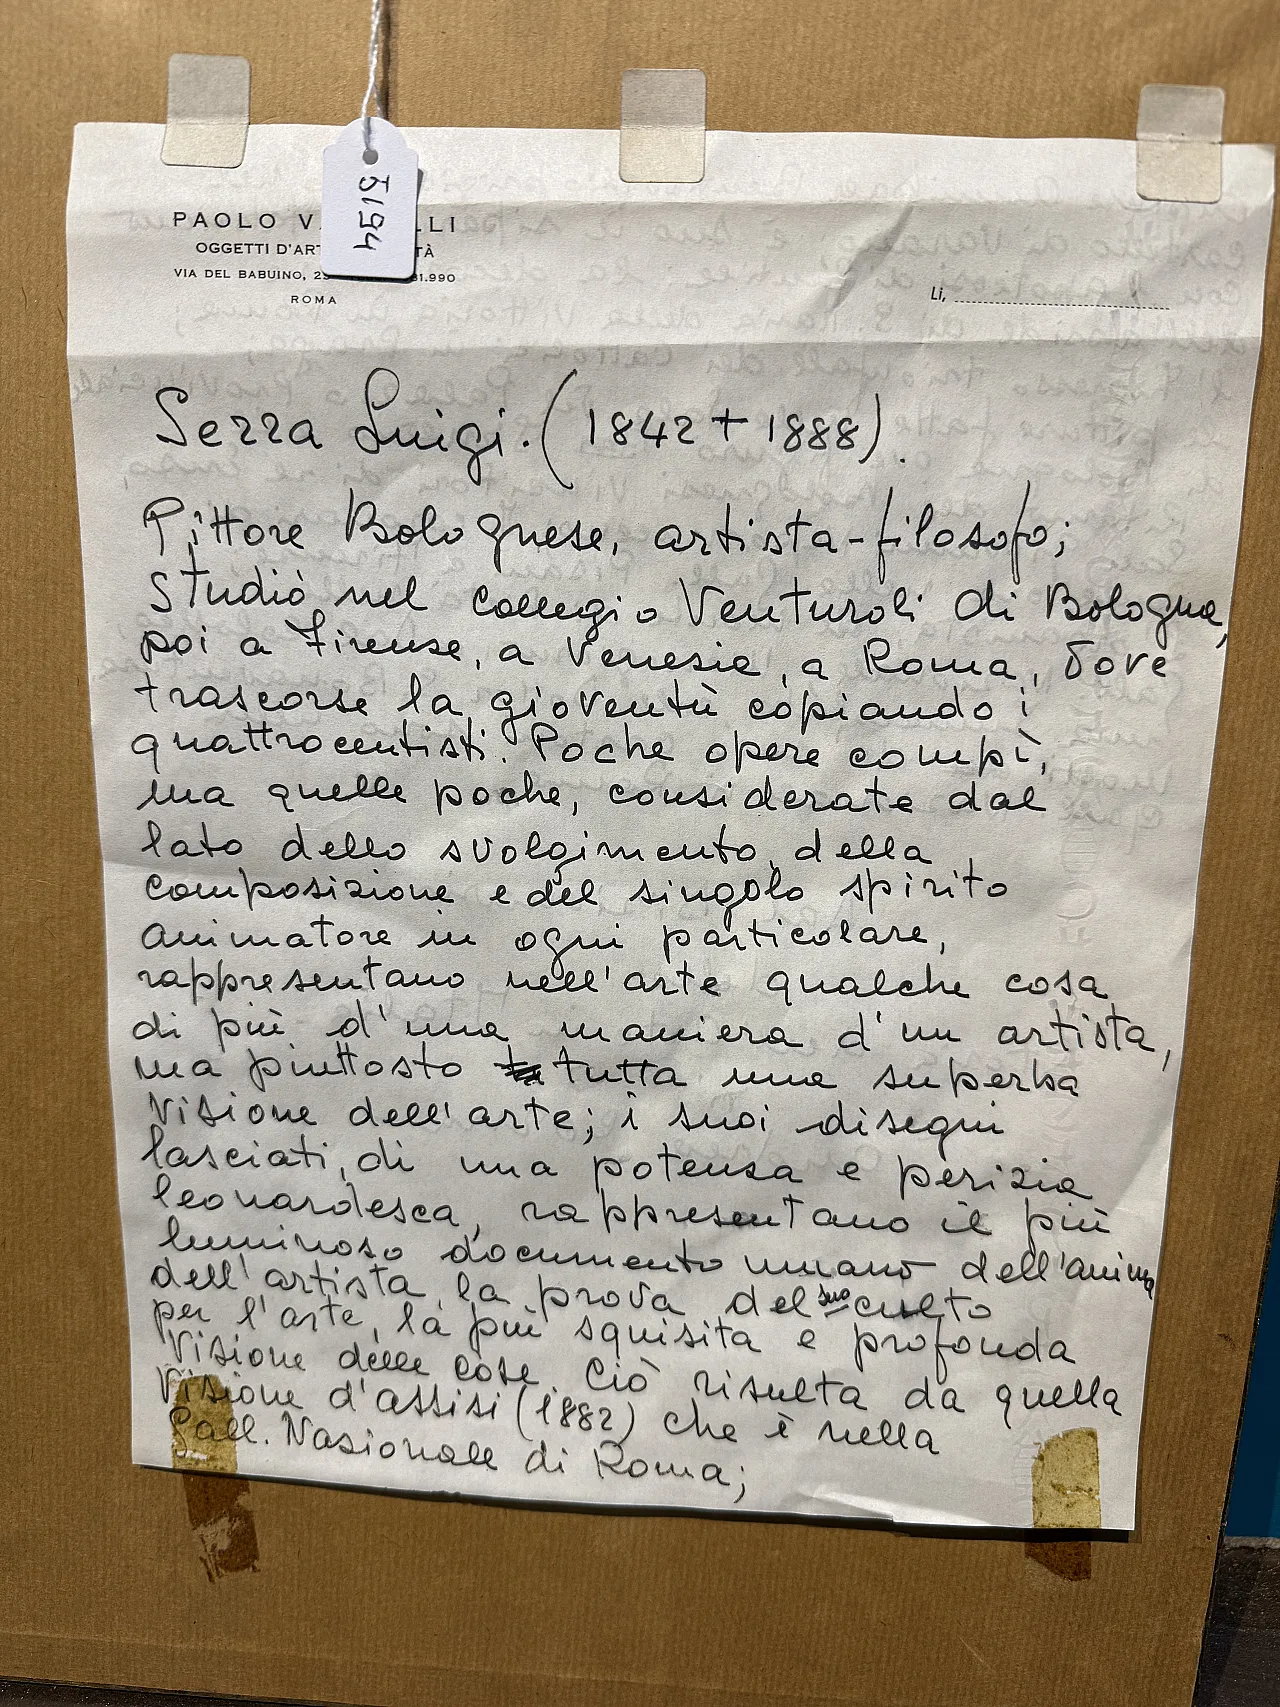 5194
PAOLO V LLI
OGGETTI D'ART TÀ
VIA DEL BABUINO, 2 81.990
ROMA
Li,
Serra Luigi. (1842 + 1888).
Pittore Bolognese, artista-filosofo;
studiò nel collegio Venturoli di Bologna,
poi a Firense, a Venesia, a Roma, dove
trascorse la gioventù copiando i
quattrocentisti. Poche opere compì,
ma quelle poche, considerate dal
lato dello svolgimento della
composizione e del singolo spirito
animatore in ogni particolare,
rappresentano nell'arte qualche cosa
di più d'una maniera d'un artista,
ma piuttosto tutta una superba
visione dell'arte; i suoi disegni
lasciati, di una potensa e perizia
leonardesca, rappresentano il più
luminoso documento umano dell'anima
dell'artista, la prova del suo culto
per l'arte, la più squisita e profonda
visione delle cose. Ciò risulta da quella
Visione d'assisi (1882) che è nella
Gall. Nasionale di Roma;